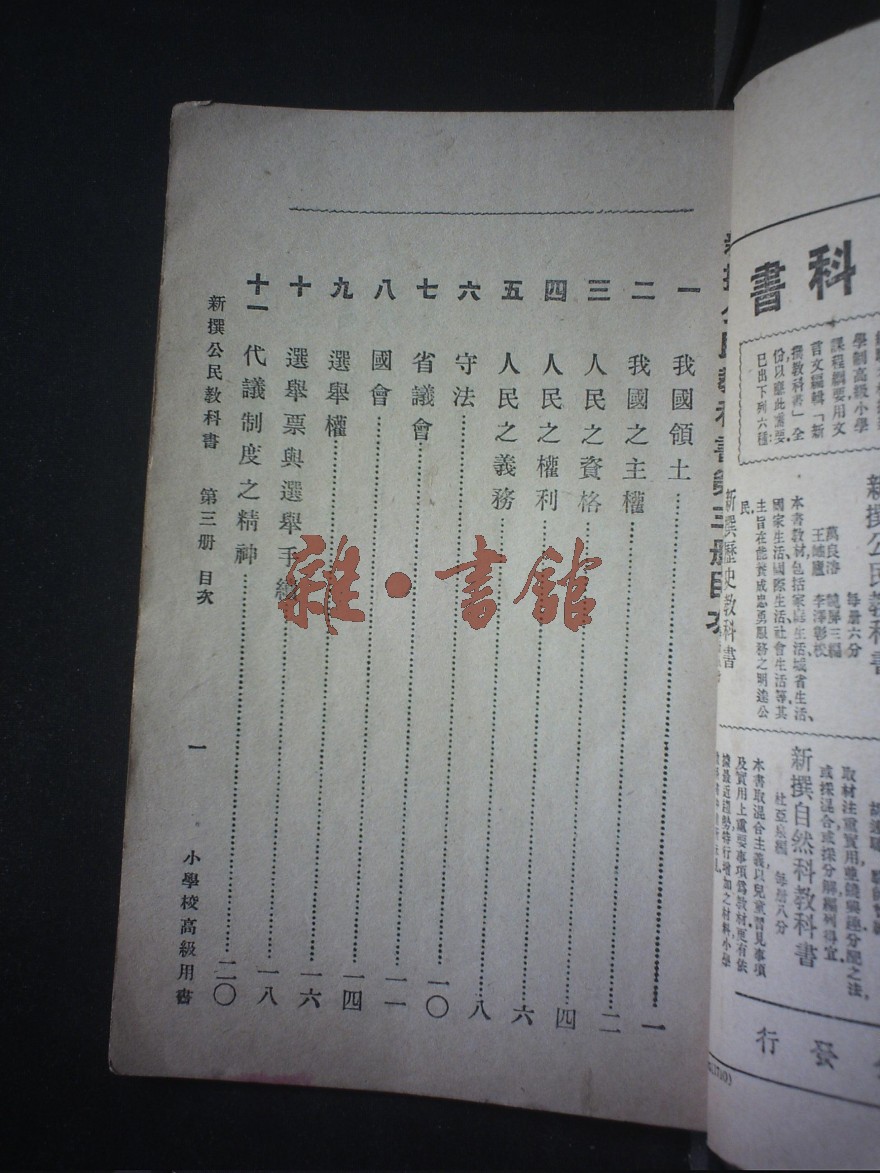 一 我國領土 一
二 我國之主權 二
三 人民之資格 四
四 人民之權利 六
五 人民之義務 八
六 守法 一〇
七 省議會 一一
八 國會 一四
九 選舉權 一六
十 選舉票與選舉手續 一八
十一 代議制度之精神 二〇
新撰公民教科書 第三册 目次 一 小學校高級用書
雜·書館
科書
學制高級小學
課程綱要用文
言文編輯「新
撰教科書」全
份以應此需要
已出下列六種
新撰公民教科書
每册六分
本書教材包括家庭生活、城省生活、
國家生活、國際生活、社會生活等其
主旨在能養成忠勇服務之明達公
民
新撰歷史教科書
取材注重實用並錢
或採混合或採分解編列得宜
新撰自然科教科書
杜亞泉編 每册八分
本書取混合主義以兒童習見事項
及實用上重要事項爲教材更有依
據最近趨勢特行增加之材料小學
發行